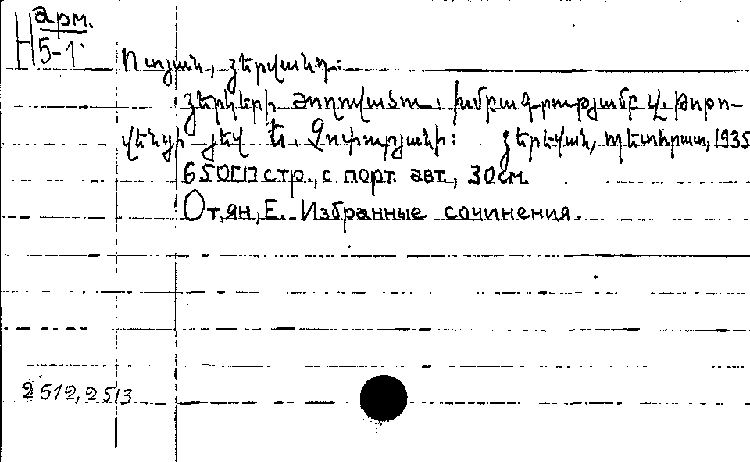 арм.
Н 5-1
Ոտյան, Յերվանդ։
Յերկերի ժողովածու. խմբագրությամբ Վ. Թորո-
վենցի յեվ Ե. Չուբարյանի։ Յերեվան, Պետհրատ, 1935
650 стр., с порт. авт., 30 см.
Отян, Е. Избранные сочинения.
2512, 2513